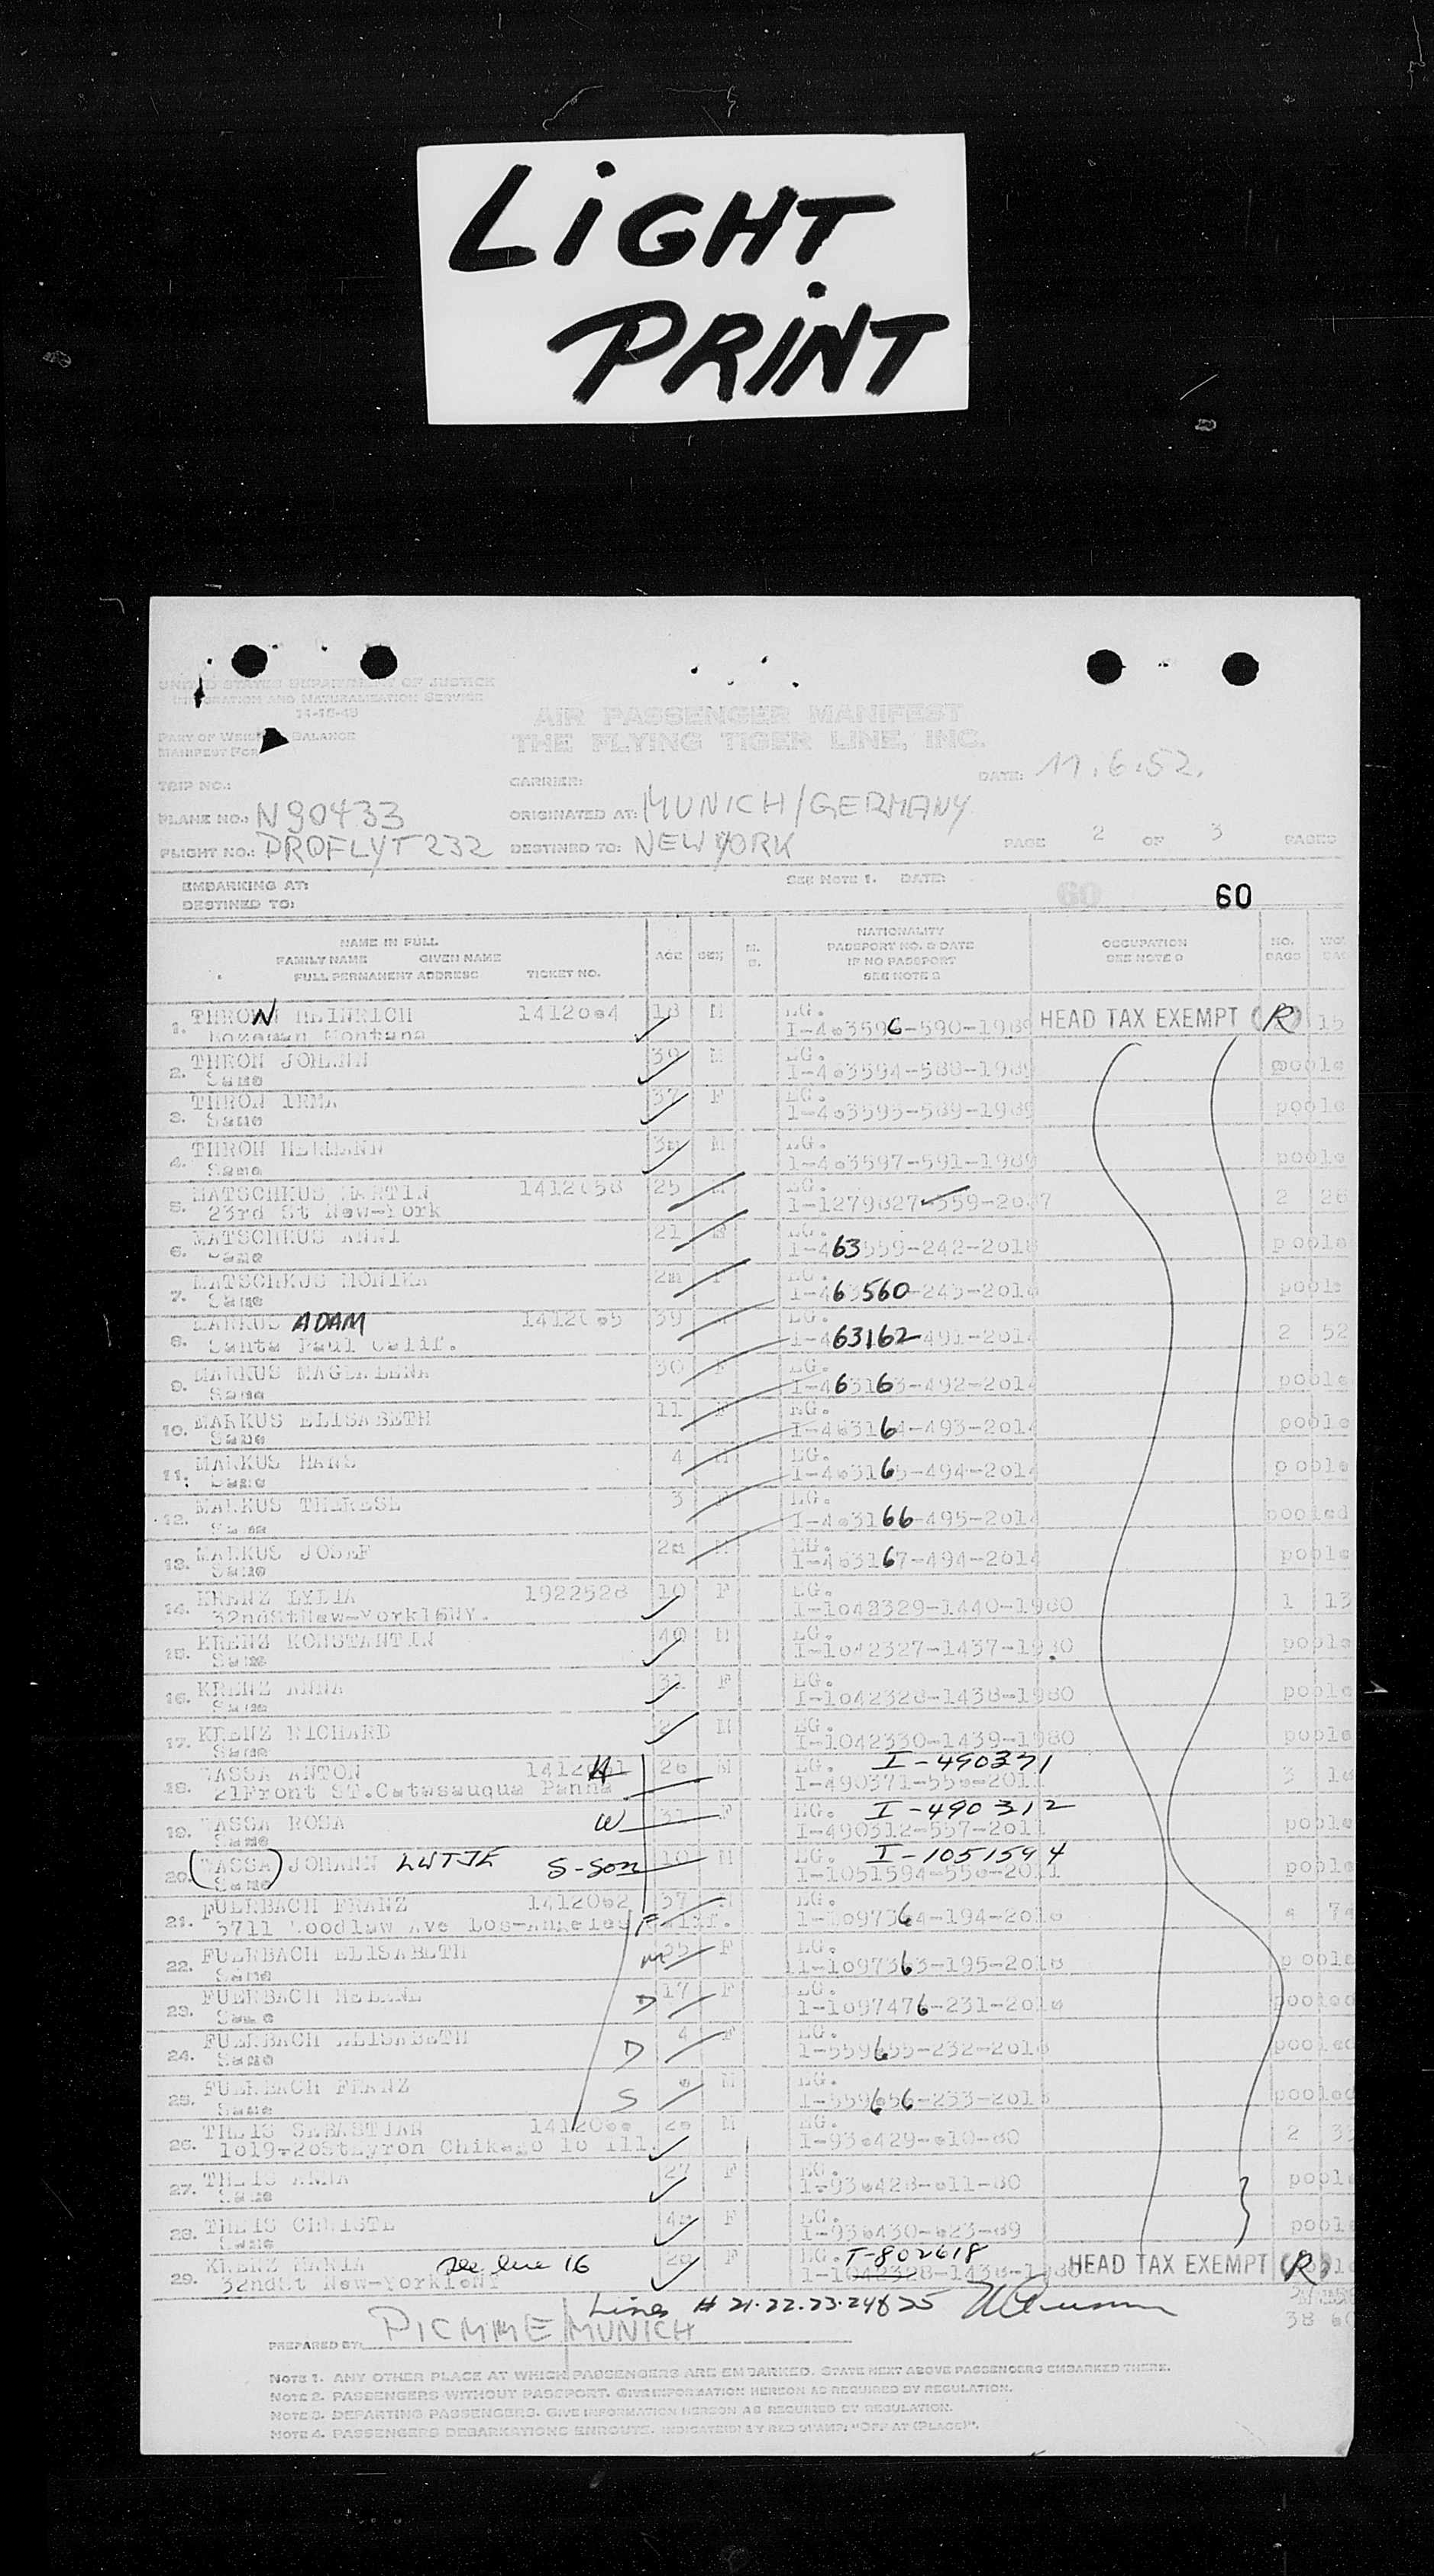 LiGHT
PRiNT
UNITED STATES DEPARTMENT OF JUSTICE
IMMIGRATION AND NATURALIZATION SERVICE
11-15-49
PART OF WEIGHT BALANCE
MANIFEST FOR
AIR PASSENGER MANIFEST
THE FLYING TIGER LINE, INC.
TRIP NO.: CARRIER: DATE: 11.6.52.
PLANE NO.: N90433 ORIGINATED AT: MUNICH/GERMANY
FLIGHT NO.: PROFLYT 232 DESTINED TO: NEW YORK PAGE 2 OF 3 PAGES
EMBARKING AT: SEE NOTE 1. DATE:
DESTINED TO: 60 60
NAME IN FULL
FAMILY NAME GIVEN NAME
FULL PERMANENT ADDRESS TICKET NO. AGE SEX M. S. NATIONALITY PASSPORT NO. & DATE IF NO PASSPORT SEE NOTE 2 OCCUPATION SEE NOTE 3 NO. BAGS
1. THRON HEINRICH 1412064 18 M EG. HEAD TAX EXEMPT (R) 15
Bozeman Montana I-463596-590-1989
2. THRON JOHANN 39 M EG. poole
Same I-463594-588-198
3. THRON IRMA 37 F EG. poole
Same I-463595-589-1989
4. THRON HERMANN 3m M EG. poole
Same I-463597-591-1989
5. MATSCHKUS MARTIN 1412058 25 M EG. 2 26
23rd St New-York I-1279827-559-2017
6. MATSCHKUS ANNI 21 F EG. poole
Same I-463559-242-2018
7. MATSCHKUS MONIKA 2m F EG. poole
Same I-463560-243-201
8. MARKUS ADAM 1412065 39 M EG. 2 52
Santa Paul Calif. I-463162-491-2014
9. MARKUS MAGDALENA 30 F EG. poole
Same I-463163-492-2014
10. MARKUS ELISABETH 11 F EG. poole
Same I-463164-493-2014
11. MARKUS HANS 4 M EG. poole
Same I-463165-494-2014
12. MARKUS THERESE 3 F EG. pooled
Same I-463166-495-2014
13. MARKUS JOSEF 2m M EG. poole
Same I-463167-494-2014
14. KRENZ LYDIA 1922528 10 F EG. 1 13
32ndStNew-York16NY. I-1042329-1440-1980
15. KRENZ KONSTANTIN 40 M EG. poole
Same I-1042327-1437-1980
16. KRENZ ANNA 31 F EG. poole
Same I-1042328-1438-1980
17. KRENZ RICHARD M EG. poole
Same I-1042330-1439-1980
18. WASSA ANTON 1412061 H 26 M EG. I-490371 3
21Front ST.Catasauqua Penna I-490371-556-2011
19. WASSA ROSA W 31 F EG. I-490312 poole
Same I-490312-557-2011
20. (WASSA) JOHANN LUTJE S-Son 10 M EG. I-1051594 poole
Same I-1051594-558-2011
21. FUERBACH FRANZ 1412062 37 M EG.
3711 Woodlaw Ave Los-Angeles Calif. F I-1097364-194-2018
22. FUERBACH ELISABETH m 35 F EG. poole
Same I-1097363-195-2018
23. FUERBACH HELENE D 17 F EG. pooled
Same I-1097476-231-201
24. FUERBACH ELISABETH D 4 F EG. pooled
Same I-559655-232-2018
25. FUERBACH FRANZ S M EG. pooled
Same I-559656-233-2018
26. THEIS SEBASTIAN 141206 M EG. 2
I-936429-610-80
27. THEIS ANNA 27 F EG. poole
Same I-936428-611-80
28. THEIS CHRISTE 4m F EG. poole
Same I-936430-623-89
29. KRENZ MARIA see line 16 F EG. T-802618 HEAD TAX EXEMPT (R)
32ndSt New-York16NY I-1042328-1438-1980
Lines # 21.22.23.24&25
PREPARED BY: PICMME/MUNICH 38
NOTE 1. ANY OTHER PLACE AT WHICH PASSENGERS ARE EMBARKED. STATE NEXT ABOVE PASSENGERS EMBARKED THERE.
NOTE 2. PASSENGERS WITHOUT PASSPORT. GIVE INFORMATION HEREON AS REQUIRED BY REGULATION.
NOTE 3. DEPARTING PASSENGERS. GIVE INFORMATION HEREON AS REQUIRED BY REGULATION.
NOTE 4. PASSENGERS DEBARKATIONS ENROUTE. INDICATED BY RED STAMP: "OFF AT (PLACE)".